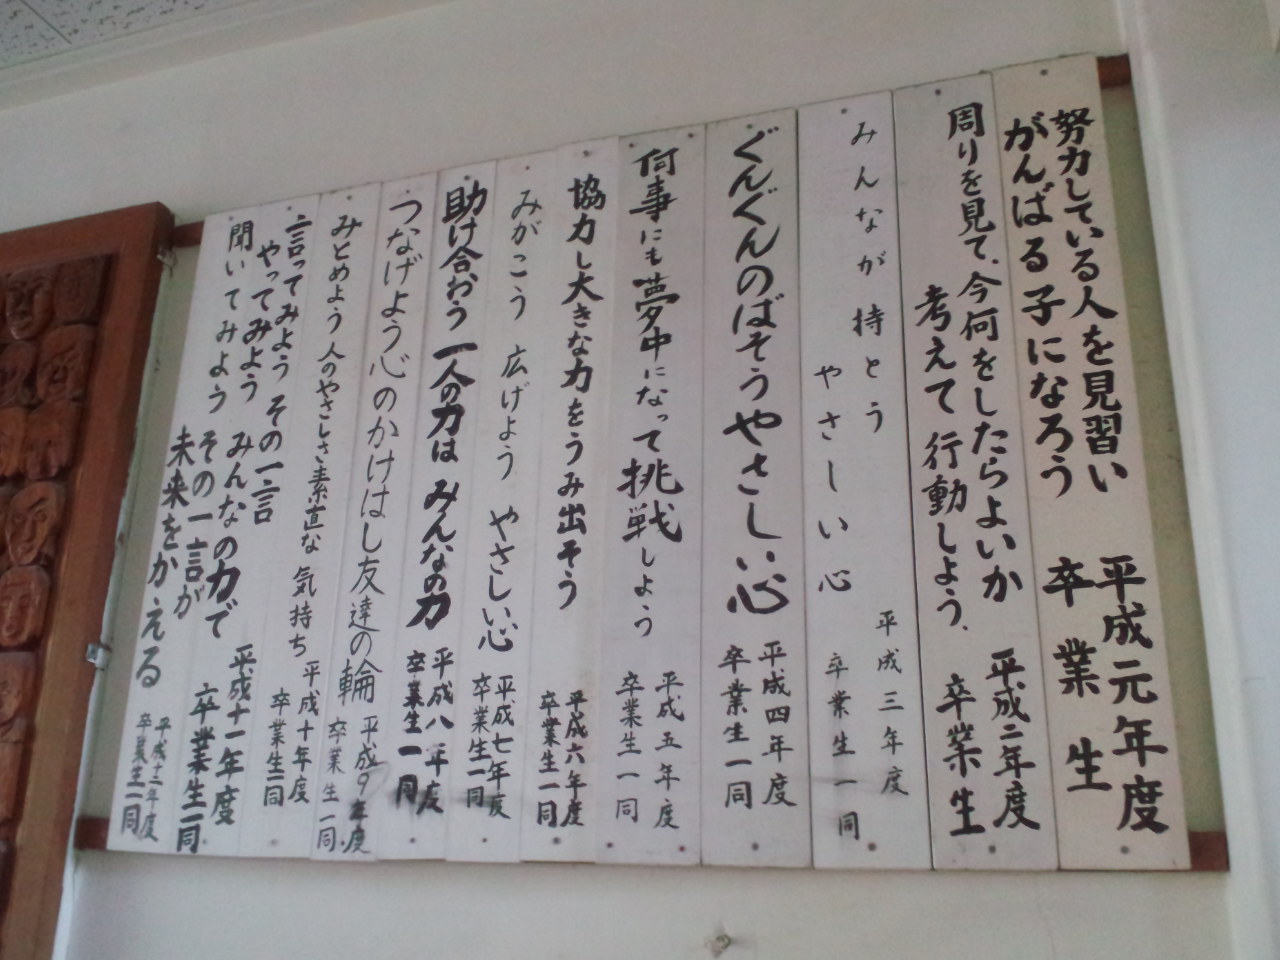 努力している人を見習い
がんばる子になろう
平成元年度
卒業生
周りを見て、今何をしたらよいか
考えて行動しよう。
平成二年度
卒業生
みんなが持とう
やさしい心
平成三年度
卒業生一同
ぐんぐんのばそうやさしい心
平成四年度
卒業生一同
何事にも夢中になって挑戦しよう
平成五年度
卒業生一同
協力し大きな力をうみ出そう
平成六年度
卒業生一同
みがこう 広げよう やさしい心
平成七年度
卒業生一同
助け合おう一人の力は みんなの力
平成八年度
卒業生一同
つなげよう心のかけはし友達の輪
平成9年度
卒業生一同
みとめよう人のやさしさ素直な気持ち
平成十年度
卒業生一同
言ってみようその一言
やってみよう みんなの力で
平成十一年度
卒業生一同
聞いてみよう その一言が
未来をかえる
平成十二年度
卒業生一同